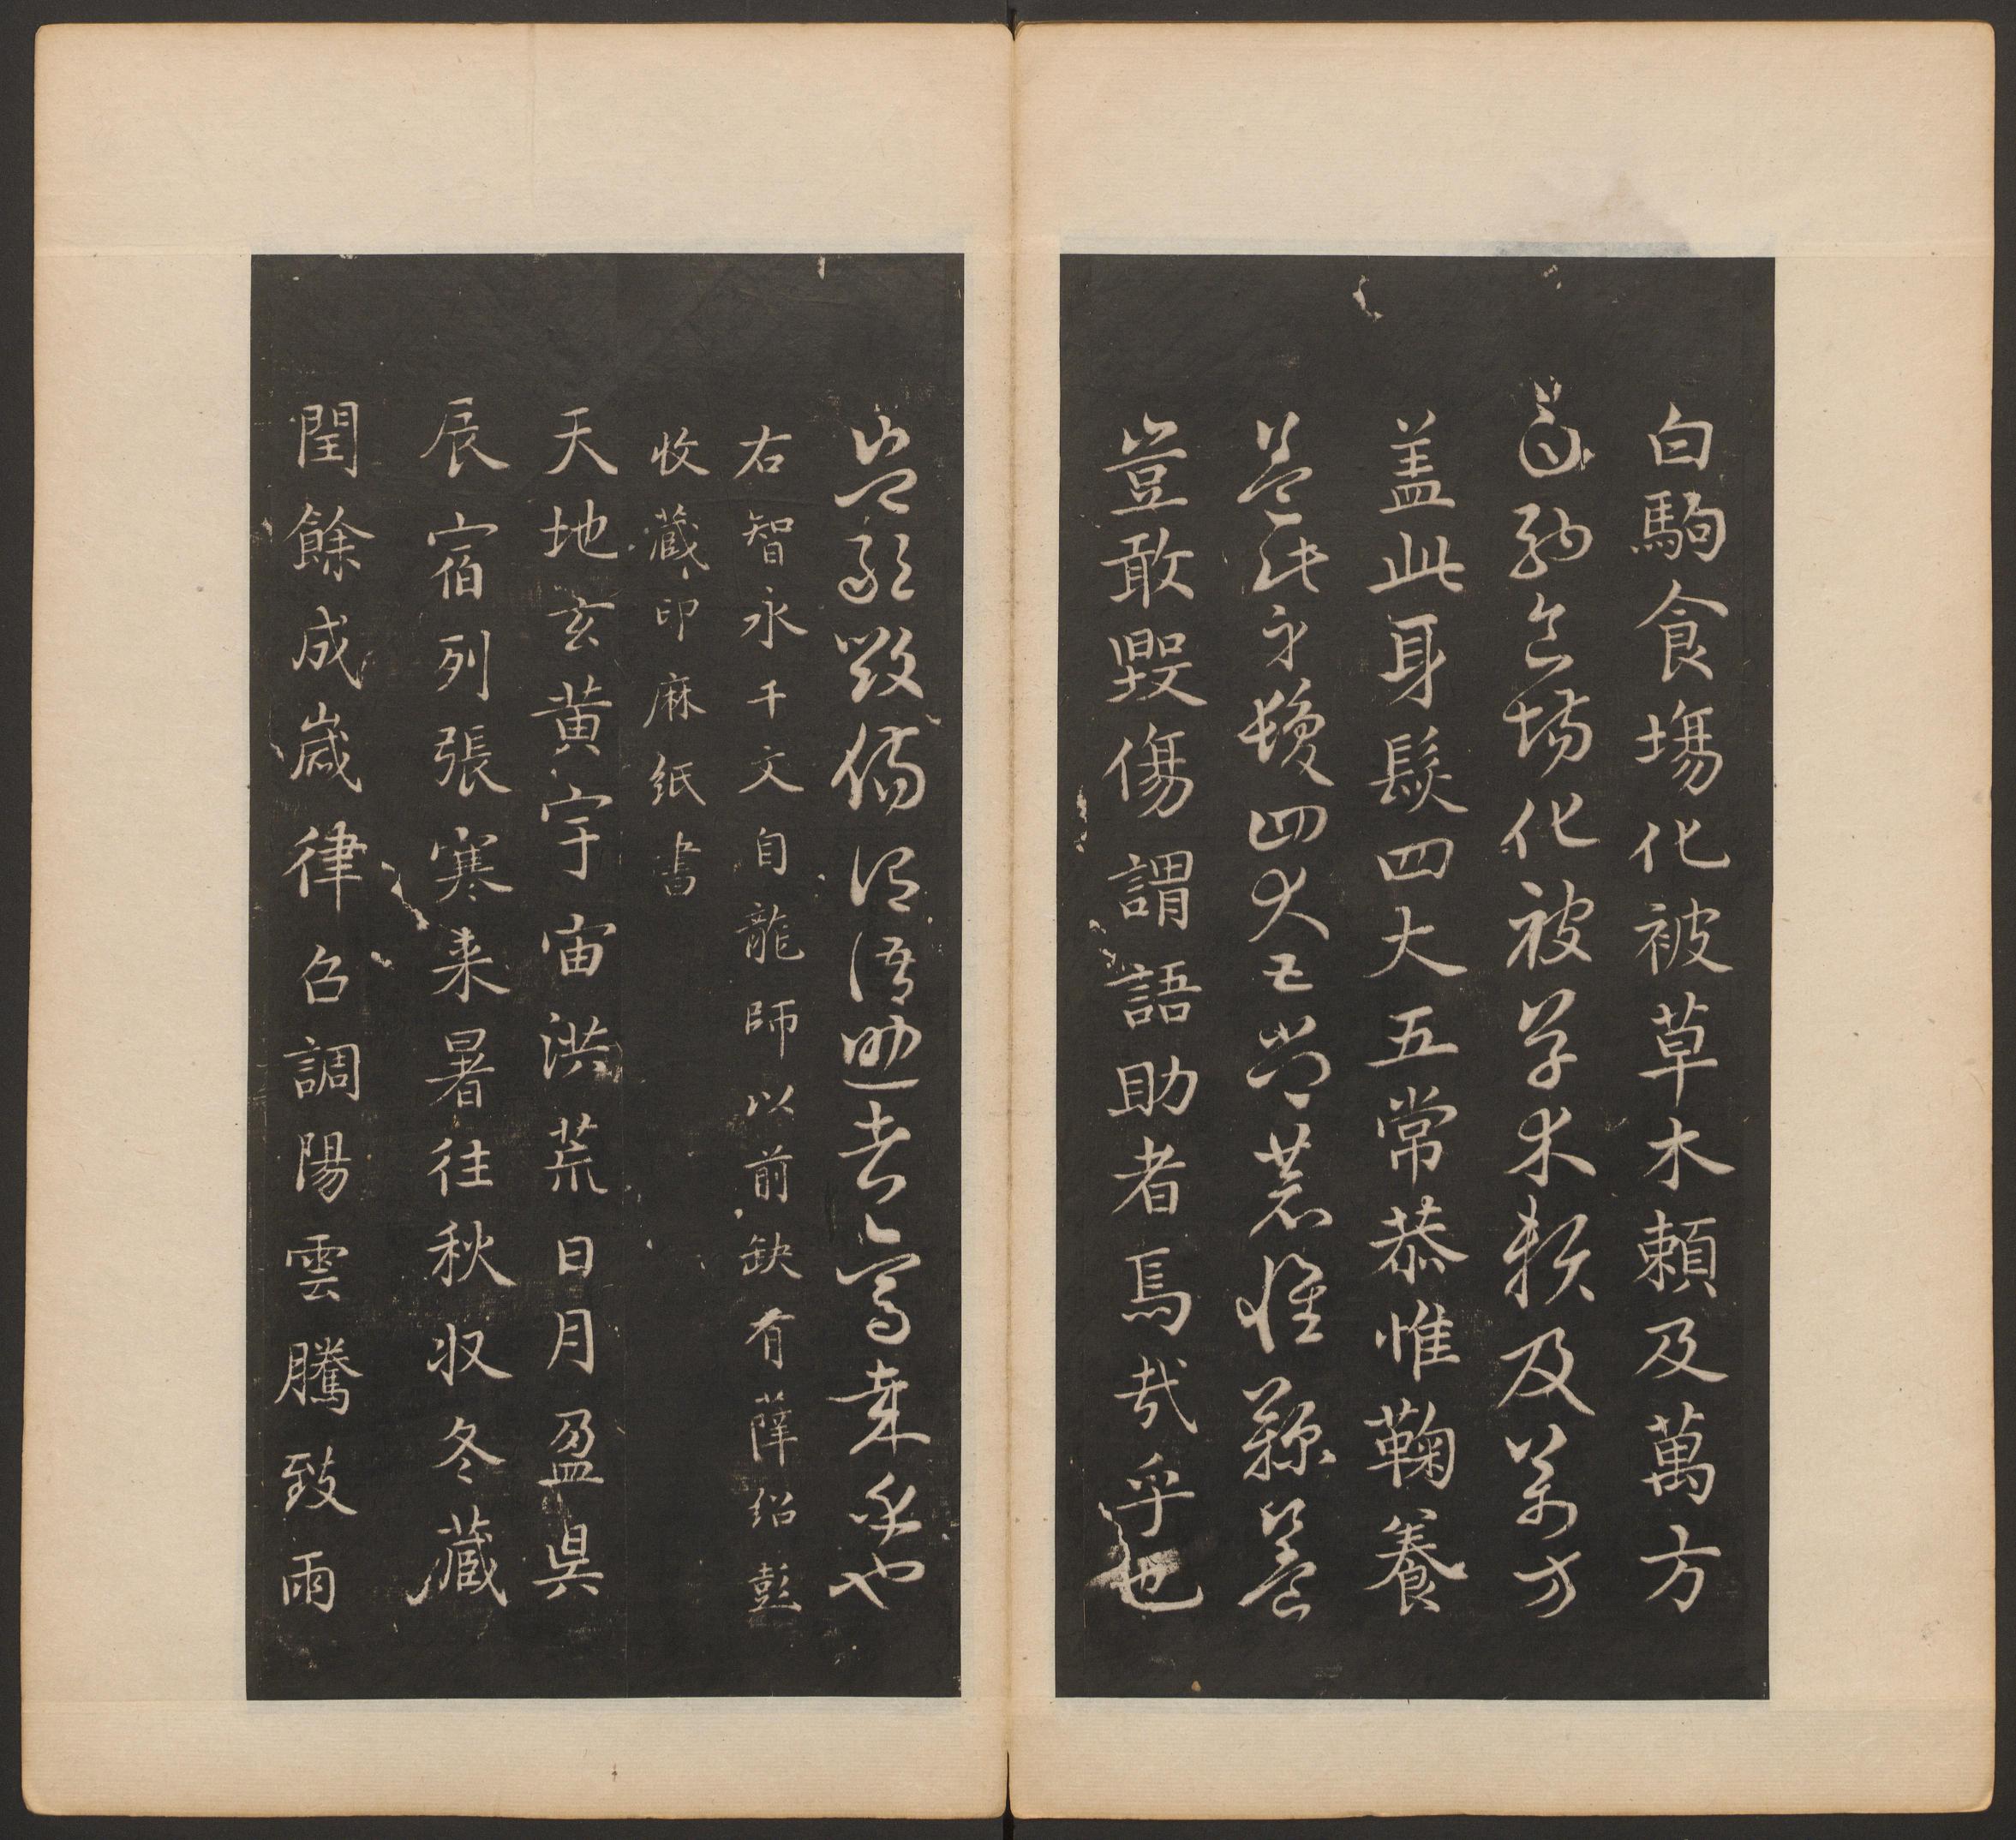 白駒食塲化被草木頼及萬方
白駒食場化被草木頼及萬方
盖此身髮四大五常恭惟鞠養
盖此身髮四大五常恭惟鞠養
豈敢毀傷謂語助者焉哉乎也
豈敢毀傷謂語助者焉哉乎也
右智永千文自龍師以前缺有薛紹彭
收藏印麻紙書
天地玄黄宇宙洪荒日月盈昃
辰宿列張寒来暑往秋収冬藏
閏餘成嵗律召調陽雲騰致雨